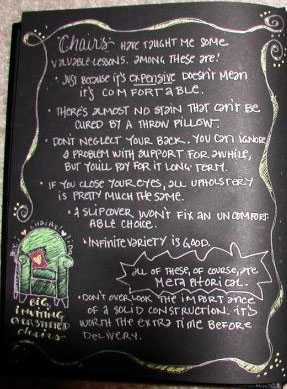 "Chairs" HAVE TAUGHT ME SOME
VALUABLE LESSONS. AMONG THESE ARE:
• JUST BECAUSE IT'S EXPENSIVE DOESN'T MEAN
IT'S COMFORTABLE.
• THERE'S ALMOST NO STAIN THAT CAN'T BE
CURED BY A THROW PILLOW.
DONT NEGLECT YOUR BACK. YOU CAN IGNORE
A PROBLEM WITH SUPPORT FOR AWHILE,
BUT YOU'LL PAY FOR IT LONG-TERM.
• IF YOU CLOSE YOUR EYES, ALL UPHOLSTERY
IS PRETTY MUCH THE SAME.
• A SLIPCOVER WON'T FIX AN UNCOMFORT-
ABLE CHOICE.
• INFINITE VARIETY IS GOOD.
ALL OF THESE, OF COURSE, ARE
METAPHORICAL.
• DON'T OVERLOOK THE IMPORTANCE
OF A SOLID CONSTRUCTION. IT'S
WORTH THE EXTRA TIME BEFORE
DELIVERY.
BIG,
INVITING
OVERSTUFFED
chairs